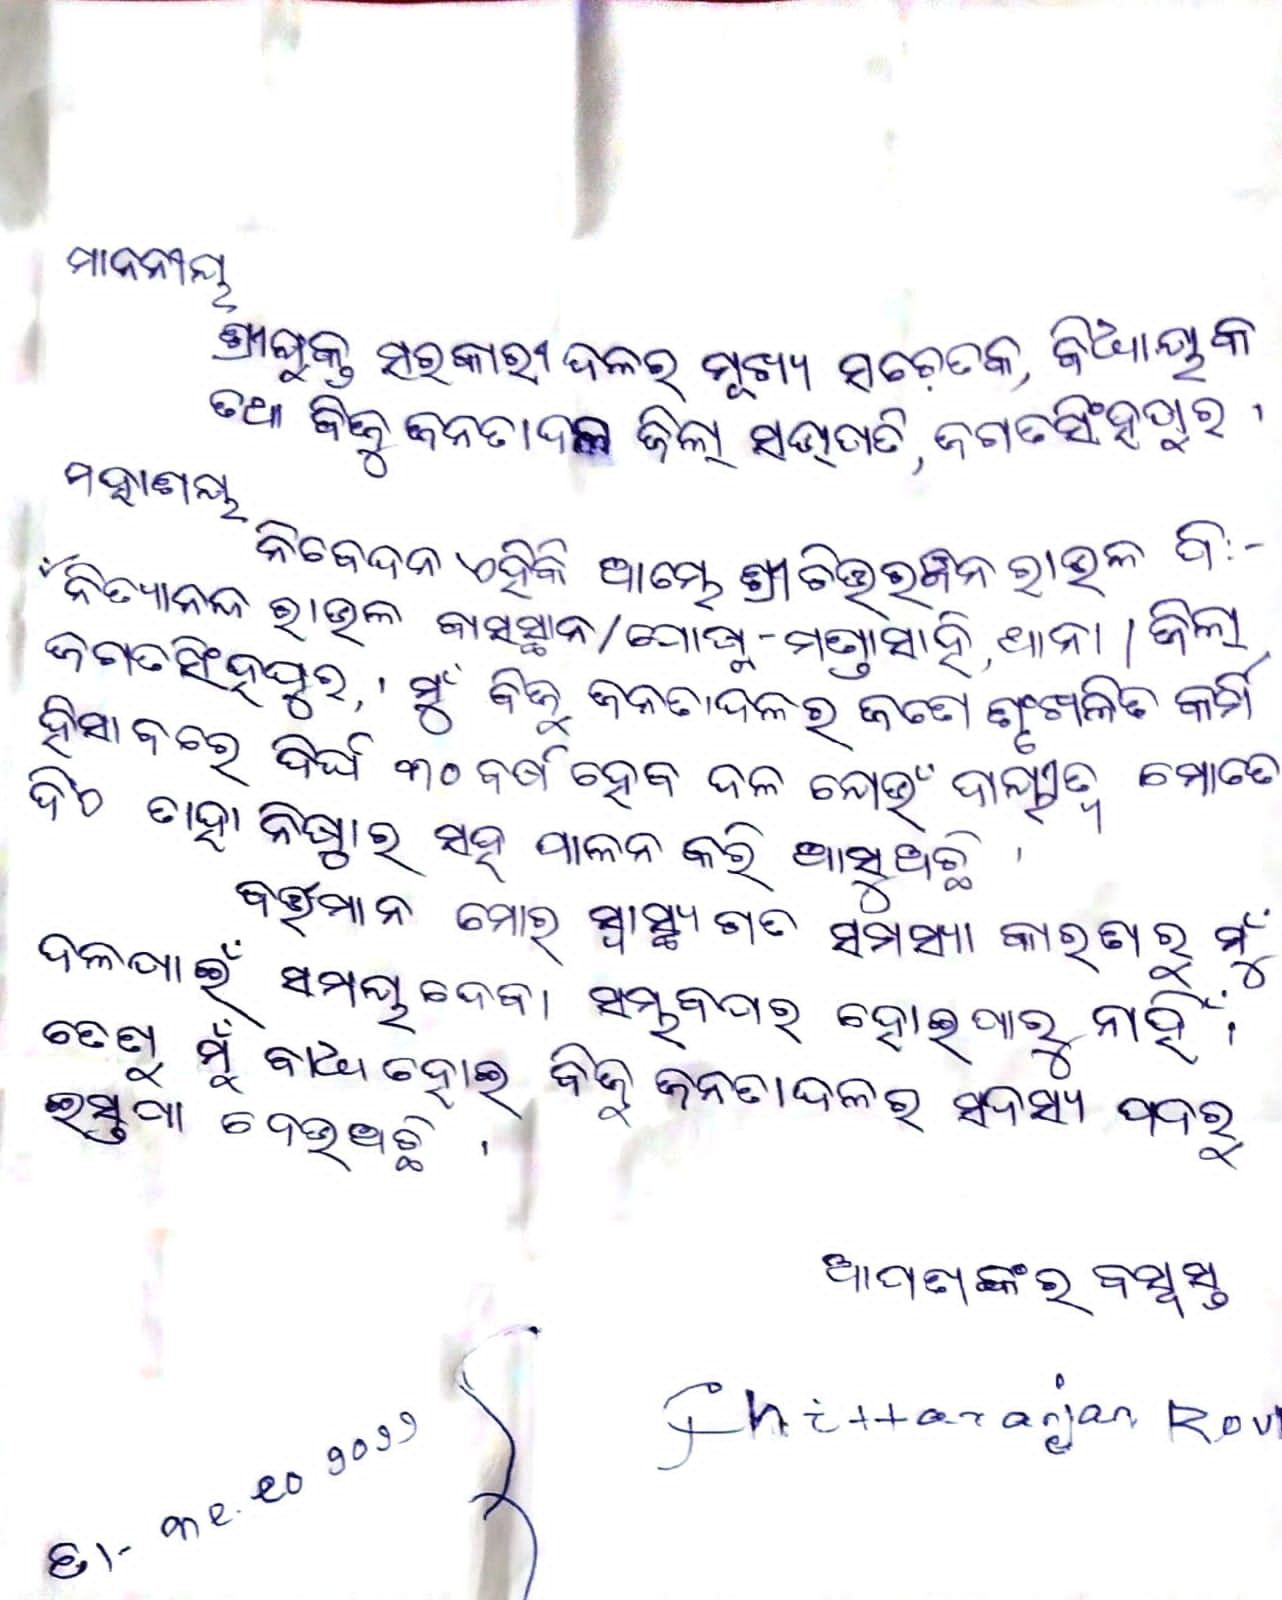 ମାନନୀୟ
ଶ୍ରୀଯୁକ୍ତ ସରକାରୀ ଦଳର ମୂଖ୍ୟ ସଚେତକ, ବିଧାୟକ
ତଥା ବିଜୁ ଜନତାଦଳ ଜିଲା ସଭାପତି, ଜଗତସିଂହପୁର ।
ମହାଶୟ
ନିବେଦନ ଏହିକି ଆମ୍ଭେ ଶ୍ରୀ ଚିତ୍ତରଞ୍ଜନ ରାଉଳ ପି:-
ଁନିତ୍ୟାନନ୍ଦ ରାଉଳ ବାସସ୍ଥାନ/ପୋଷ୍ଟ-ମଣ୍ଡାସାହି, ଥାନା / ଜିଲା
ଜଗତସିଂହପୁର, । ମୁଁ ବିଜୁ ଜନତାଦଳର ଜଣେ ଶୃଂଖଳିତ କର୍ମି
ହିସାବରେ ଦିର୍ଘ ୩୦ ବର୍ଷ ହେବ ଦଳ ଯେଉଁ ଦାୟୀତ୍ୱ ମୋତେ
ଦିଏ ତାହା ନିଷ୍ଠାର ସହ ପାଳନ କରି ଆସୁଅଛି ।
ବର୍ତ୍ତମାନ ମୋର ସ୍ୱାସ୍ଥ୍ୟଗତ ସମସ୍ୟା କାରଣରୁ ମୁଁ
ଦଳପାଇଁ ସମୟ ଦେବା ସମ୍ଭବପର ହୋଇପାରୁ ନାହିଁ ।
ତେଣୁ ମୁଁ ବାଧ୍ୟ ହୋଇ ବିଜୁ ଜନତାଦଳର ସଦସ୍ୟ ପଦରୁ
ଇସ୍ତଫା ଦେଉଅଛି ।
ଆପଣଙ୍କର ବସ୍ୱସ୍ତ
Chittaranjan
୩୧.୧୦ ୨୦୨୨